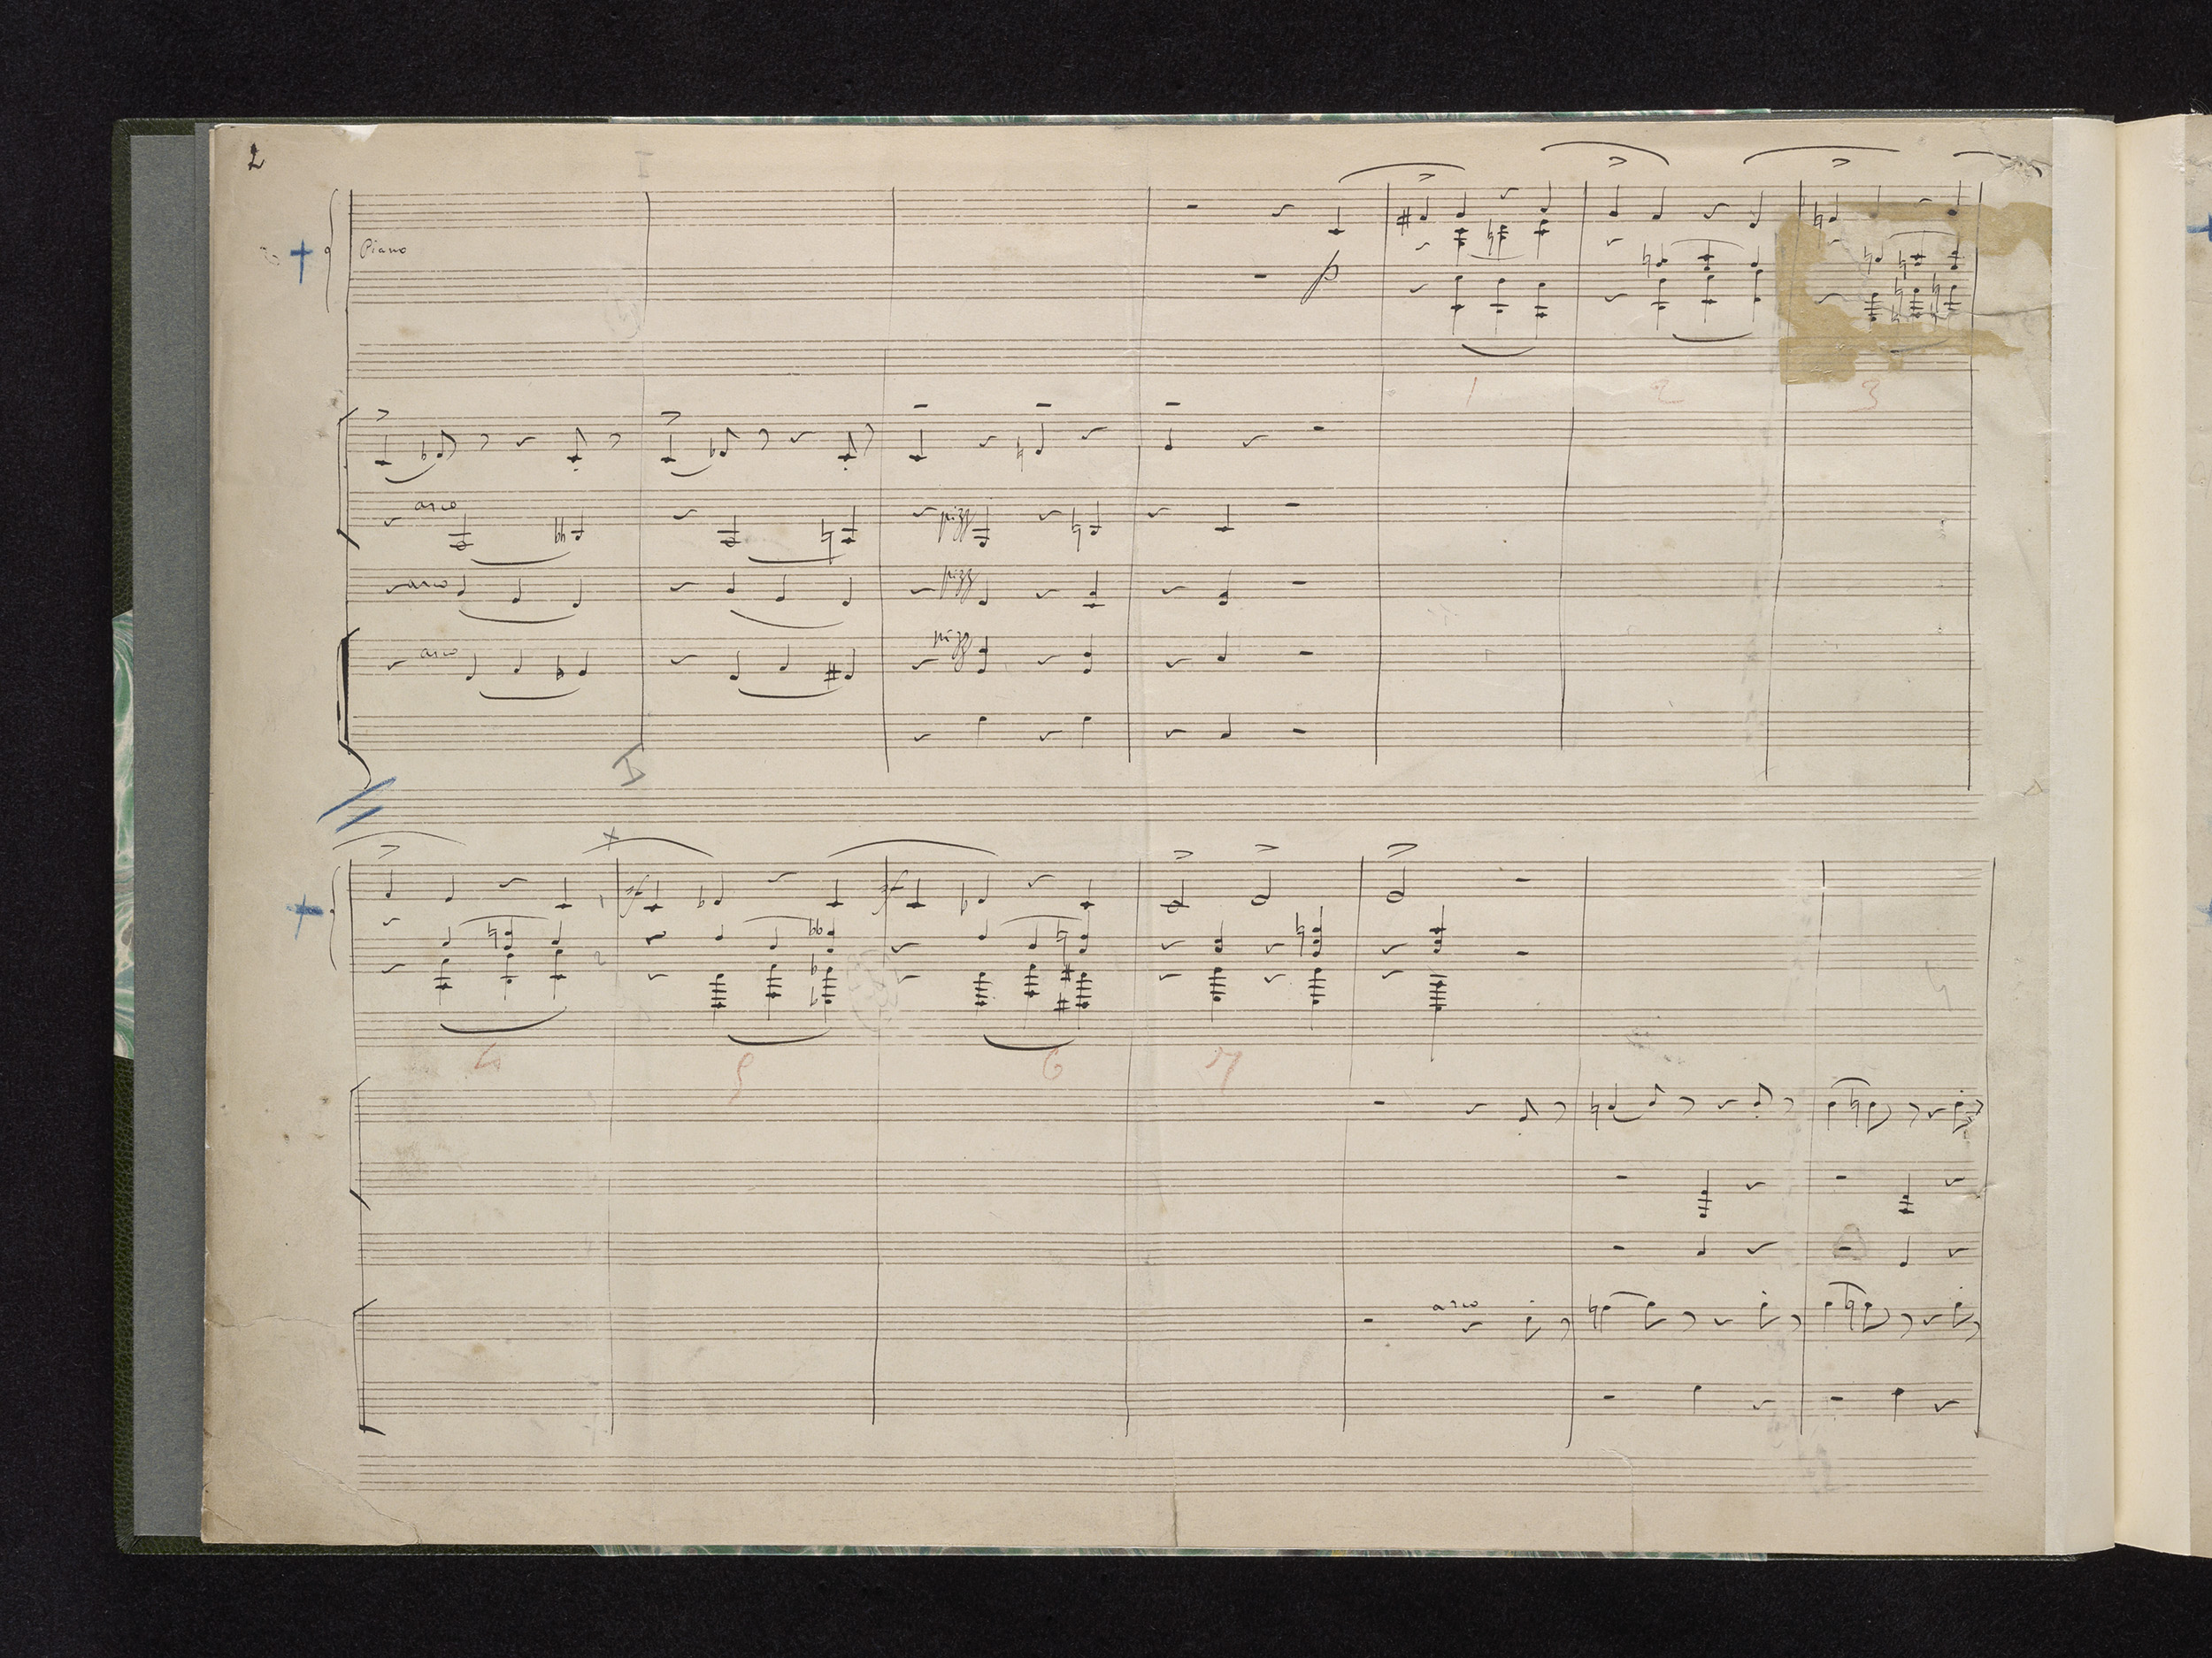 2
I
Piano
p
1 2 3
arco pizz
arco pizz
arco pizz
I
sf sf
4 5 6 7
arco